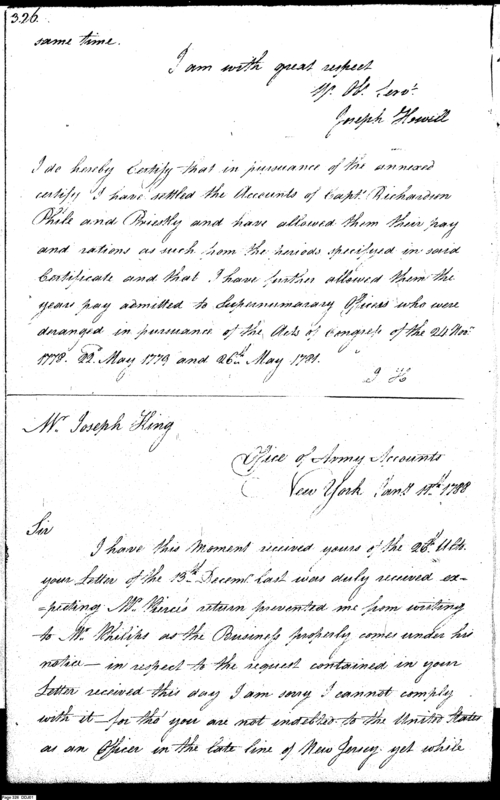 326.
same time.
I am with great respect
Yr. Obt. Servt.
Joseph Howell
I do hereby Certify that in pursuance of the annexed
certify I have settled the Accounts of Capts. Richardson
Phile and Priestly and have allowed them their pay
and rations as such from the periods specifyed in said
Certificate and that I have further allowed them the
years pay admitted to Supernumarary Officers who were
deranged in pursuance of the Acts of Congress of the 24 Novr.
1778. 22d. May 1779 and 26th. May 1781.
J H
Mr. Joseph King
Office of Army Accounts
New York Jany. 1788
Sir
I have this Moment received yours of the 26th. Ulto.
your Letter of the 13th. Decemr. last was duly received ex=
=pecting Mr. Pierce's return prevented me from writing
to Mr. Philips as the Business properly comes under his
notice— in respect to the request contained in your
Letter received this day I am sorry I cannot comply
with it— for tho' you are not indebted to the United States
as an Officer in the late line of New Jersey yet while
Page 326 DDJ01